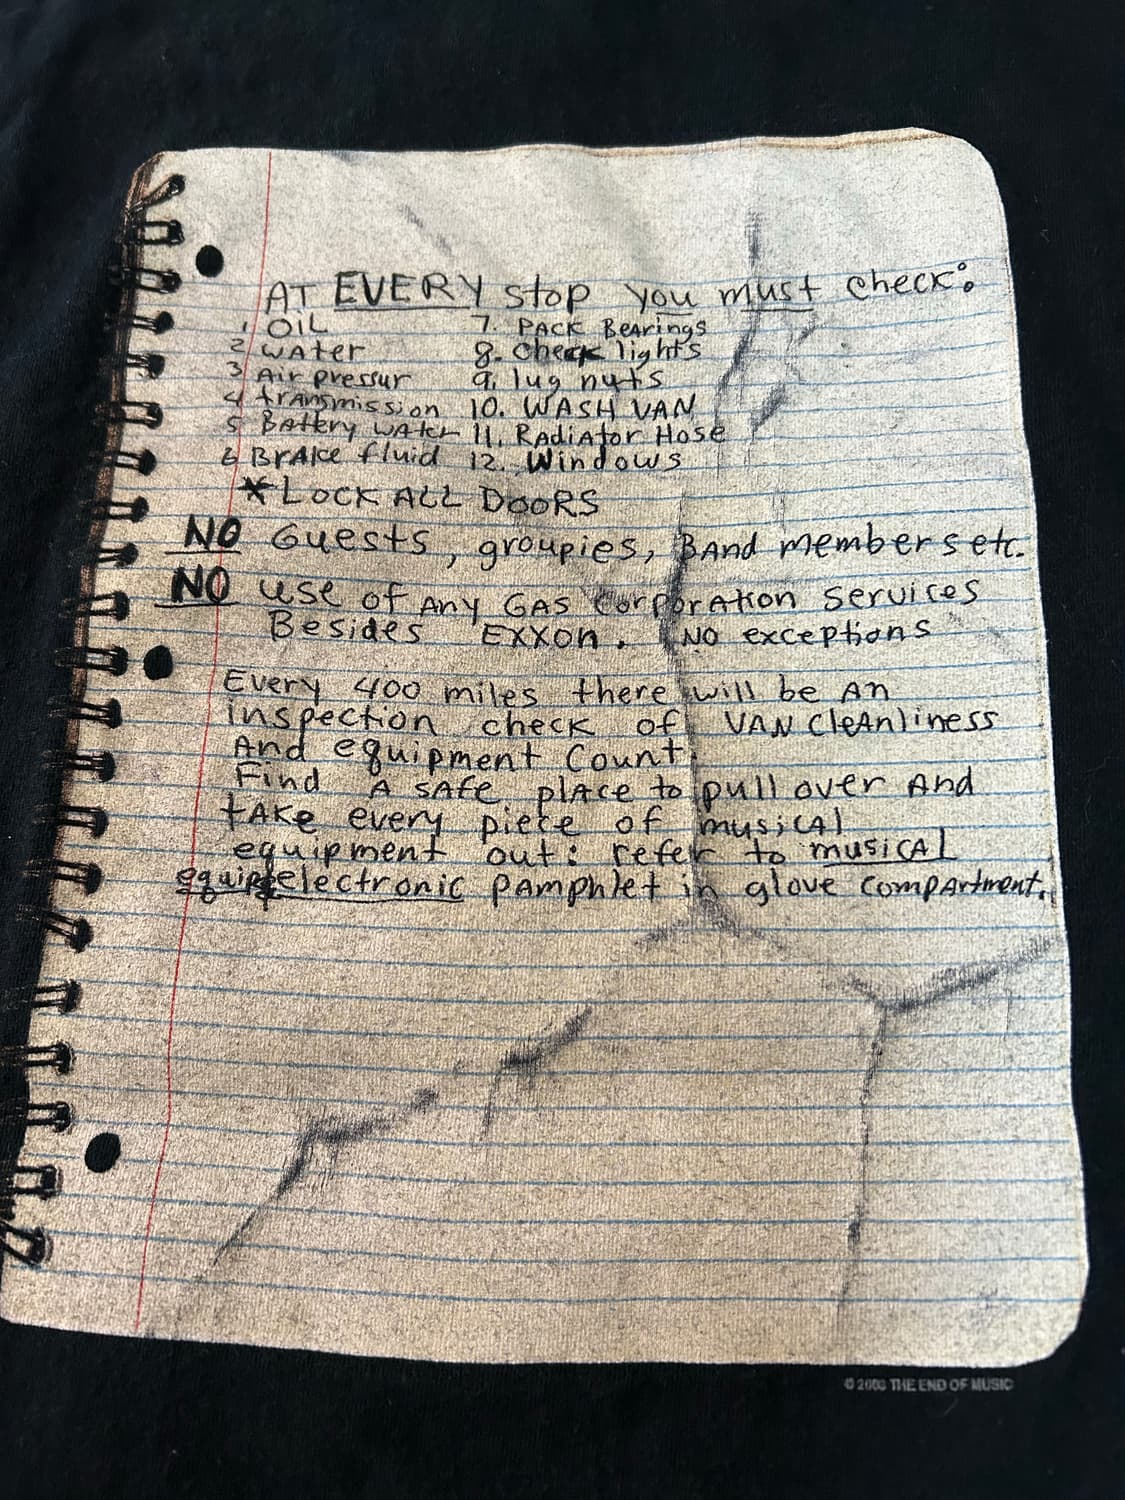 AT EVERY stop you must check:
1 OIL 7. PACK BeArings
2 WAter 8. Check lights
3 Air pressur 9. lug nuts
4 trAnsmission 10. WASH VAN
5 BAttery WAter 11. RADiAtor Hose
6 BrAke fluid 12. Windows
*LOCK ALL DOORS
NO Guests, groupies, BAnd members etc.
NO use of Any GAS CorporAtion services
Besides EXXON. NO exceptions
Every 400 miles there will be An
inspection check of VAN CleAnliness
And equipment Count.
Find A sAfe plAce to pull over And
tAke every piece of musicAl
equipment out: refer to musicAl
electronic pAmphlet in glove compArtment.
© THE END OF MUSIC